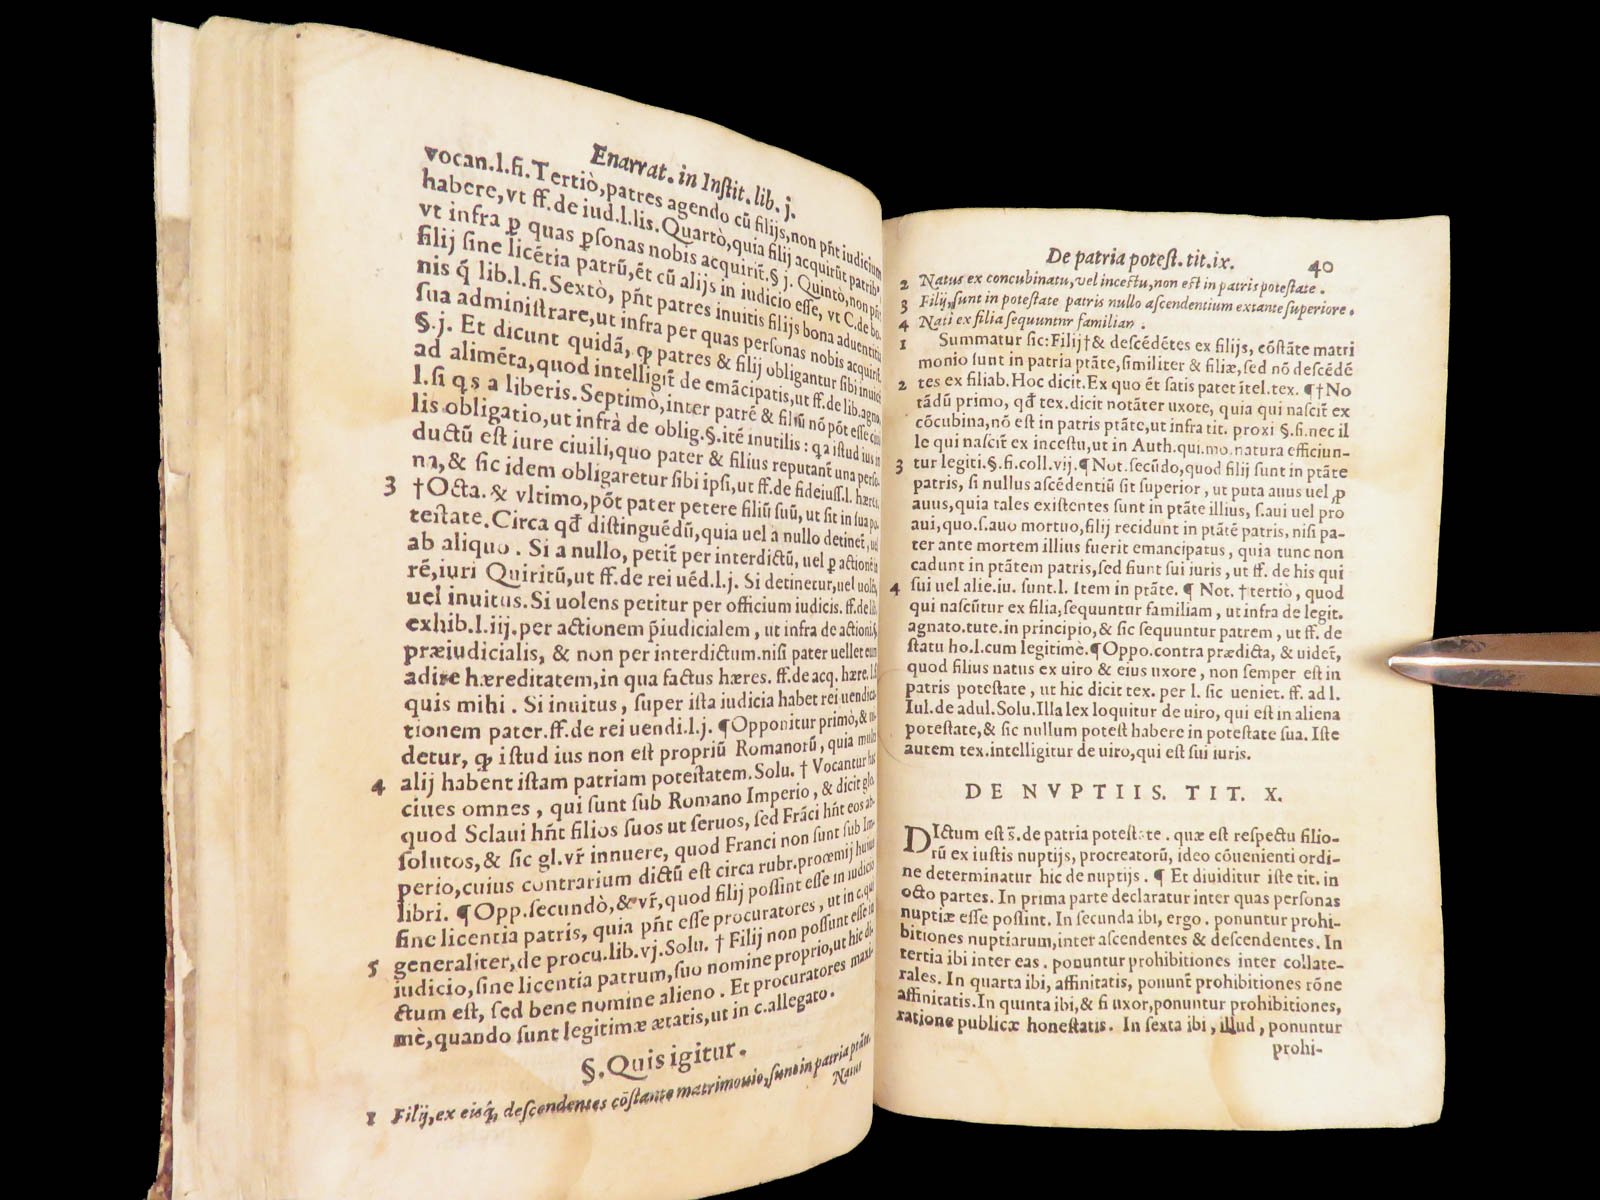 Enarrat. in Instit. lib. j.
vocan.l.fi. Tertiò, patres agendo cũ filijs, non pñt iudicium
habere, vt ff. de iud.l.lis. Quartò, quia filij acquirũt patrib⁹
vt infra ꝑ quas ꝑsonas nobis acquirit̃. §. j. Quintò, non pñt
filij sine licẽtia patrũ, ẽt cũ alijs in iudicio esse, vt C. de bo
nis q̃ lib.l.fi. Sextò, pñt patres inuitis filijs bona aduentitia
sua administrare, ut infra per quas personas nobis acquirit̃.
§. j. Et dicunt quidã, ꝙ patres & filij obligantur sibi inuicẽ
ad alimẽta, quod intelligit̃ de emãcipatis, ut ff. de lib. agno.
l. si q̃s a liberis. Septimò, inter patrẽ & filiũ nõ põt esse ciui
lis obligatio, ut infrà de oblig. §. itẽ inutilis: q̃a istud ius in
ductũ est iure ciuili, quo pater & filius reputant̃ una perso
na, & sic idem obligaretur sibi ipsi, ut ff. de fideiuss. l. hæres.
3 †Octa. & vltimo, põt pater petere filiũ suũ, ut sit in sua po
testate. Circa qđ distinguẽdũ, quia uel a nullo detinet̃, uel
ab aliquo. Si a nullo, petit̃ per interdictũ, uel ꝑ actionẽ in
rẽ, iuri Quiritũ, ut ff. de rei uẽd.l.j. Si detinetur, uel uolẽs,
uel inuitus. Si uolens petitur per officium iudicis. ff. de lib.
exhib.l.iij. per actionem p̃iudicialem, ut infra de actioni. §.
præiudicialis, & non per interdictum. nisi pater uellet eum
adire hæreditatem, in qua factus hæres. ff. de acq. hære. l. si
quis mihi. Si inuitus, super ista iudicia habet rei uendica
tionem pater. ff. de rei uendi.l.j. ¶Opponitur primò, & ui-
detur, ꝙ istud ius non est propriũ Romanorũ, quia multi
4 alij habent istam patriam potestatem. Solu. † Vocantur hic
ciues omnes, qui sunt sub Romano Imperio, & dicit glo.
quod Sclaui hñt filios suos ut seruos, sed Frãci hñt eos ab-
solutos, & sic gl. vr̃ innuere, quod Franci non sunt sub Im-
perio, cuius contrarium dictũ est circa rubr. procemij huius
libri. ¶Opp. secundò, & vr̃, quod filij possint esse in iudicio
sine licentia patris, quia pñt esse procuratores, ut in c. qui
5 generaliter, de procu. lib. vj. Solu. † Filij non possunt esse in
iudicio, sine licentia patrum, suo nomine proprio, ut hic di-
ctum est, sed bene nomine alieno. Et procuratores maxi-
mè, quando sunt legitimæ ætatis, ut in c. allegato.
§. Quis igitur.
1 Filij, ex eisq́, descendentes cõstante matrimonio, sunt in patria ptãte.
Natus
De patria potest. tit. ix. 40
2 Natus ex concubinatu, vel incestu, non est in patris potestate.
3 Filij, sunt in potestate patris nullo ascendentium extante superiore.
4 Nati ex filia sequuntnr familiam.
1 Summatur sic: Filij†& descẽdẽtes ex filijs, cõstãte matri
monio sunt in patria ptãte, similiter & filiæ, sed nõ descẽdẽ
2 tes ex filiab. Hoc dicit. Ex quo ẽt satis patet ĩtel. tex. ¶†No
tãdũ primo, qđ tex. dicit notãter uxore, quia qui nascit̃ ex
cõcubina, nõ est in patris ptãte, ut infra tit. proxi §.fi. nec il
le qui nascit̃ ex incestu, ut in Auth. qui. mo. natura efficiun-
3 tur legiti. §. fi. coll. vij. ¶Not. secũdo, quod filij sunt in ptãte
patris, si nullus ascẽdentiũ sit superior, ut puta auus uel ꝓ
auus, quia tales existẽtes sunt in ptãte illius, s. aui uel pro
aui, quo. s. auo mortuo, filij recidunt in ptãtẽ patris, nisi pa-
ter ante mortem illius fuerit emancipatus, quia tunc non
cadunt in ptãtem patris, sed fiunt sui iuris, ut ff. de his qui
4 sui uel alie. iu. sunt. l. Item in ptãte. ¶ Not. †tertiò, quod
qui nascũtur ex filia, sequuntur familiam, ut infra de legit.
agnato. tute. in principio, & sic sequuntur patrem, ut ff. de
statu ho.l. cum legitimè. ¶Oppo. contra prædicta, & uidet̃,
quod filius natus ex uiro & eius uxore, non semper est in
patris potestate, ut hic dicit tex. per l. sic ueniet. ff. ad l.
Iul. de adul. Solu. Illa lex loquitur de uiro, qui est in aliena
potestate, & sic nullum potest habere in potestate sua. Iste
autem tex. intelligitur de uiro, qui est sui iuris.
DE NVPTIIS. TIT. X.
DIctum est s̃. de patria potestate. quæ est respectu filio-
rũ ex iustis nuptijs, procreatorũ, ideo cõuenienti ordi-
ne determinatur hic de nuptijs. ¶ Et diuiditur iste tit. in
octo partes. In prima parte declaratur inter quas personas
nuptiæ esse possint. In secunda ibi, ergo. ponuntur prohi-
bitiones nuptiarum, inter ascendentes & descendentes. In
tertia ibi inter eas. ponuntur prohibitiones inter collate-
rales. In quarta ibi, affinitati, ponunt̃ prohibitiones rõne
affinitatis. In quinta ibi, & si uxor, ponuntur prohibitiones,
ratione publicæ honestatis. In sexta ibi, illud, ponuntur
prohi-